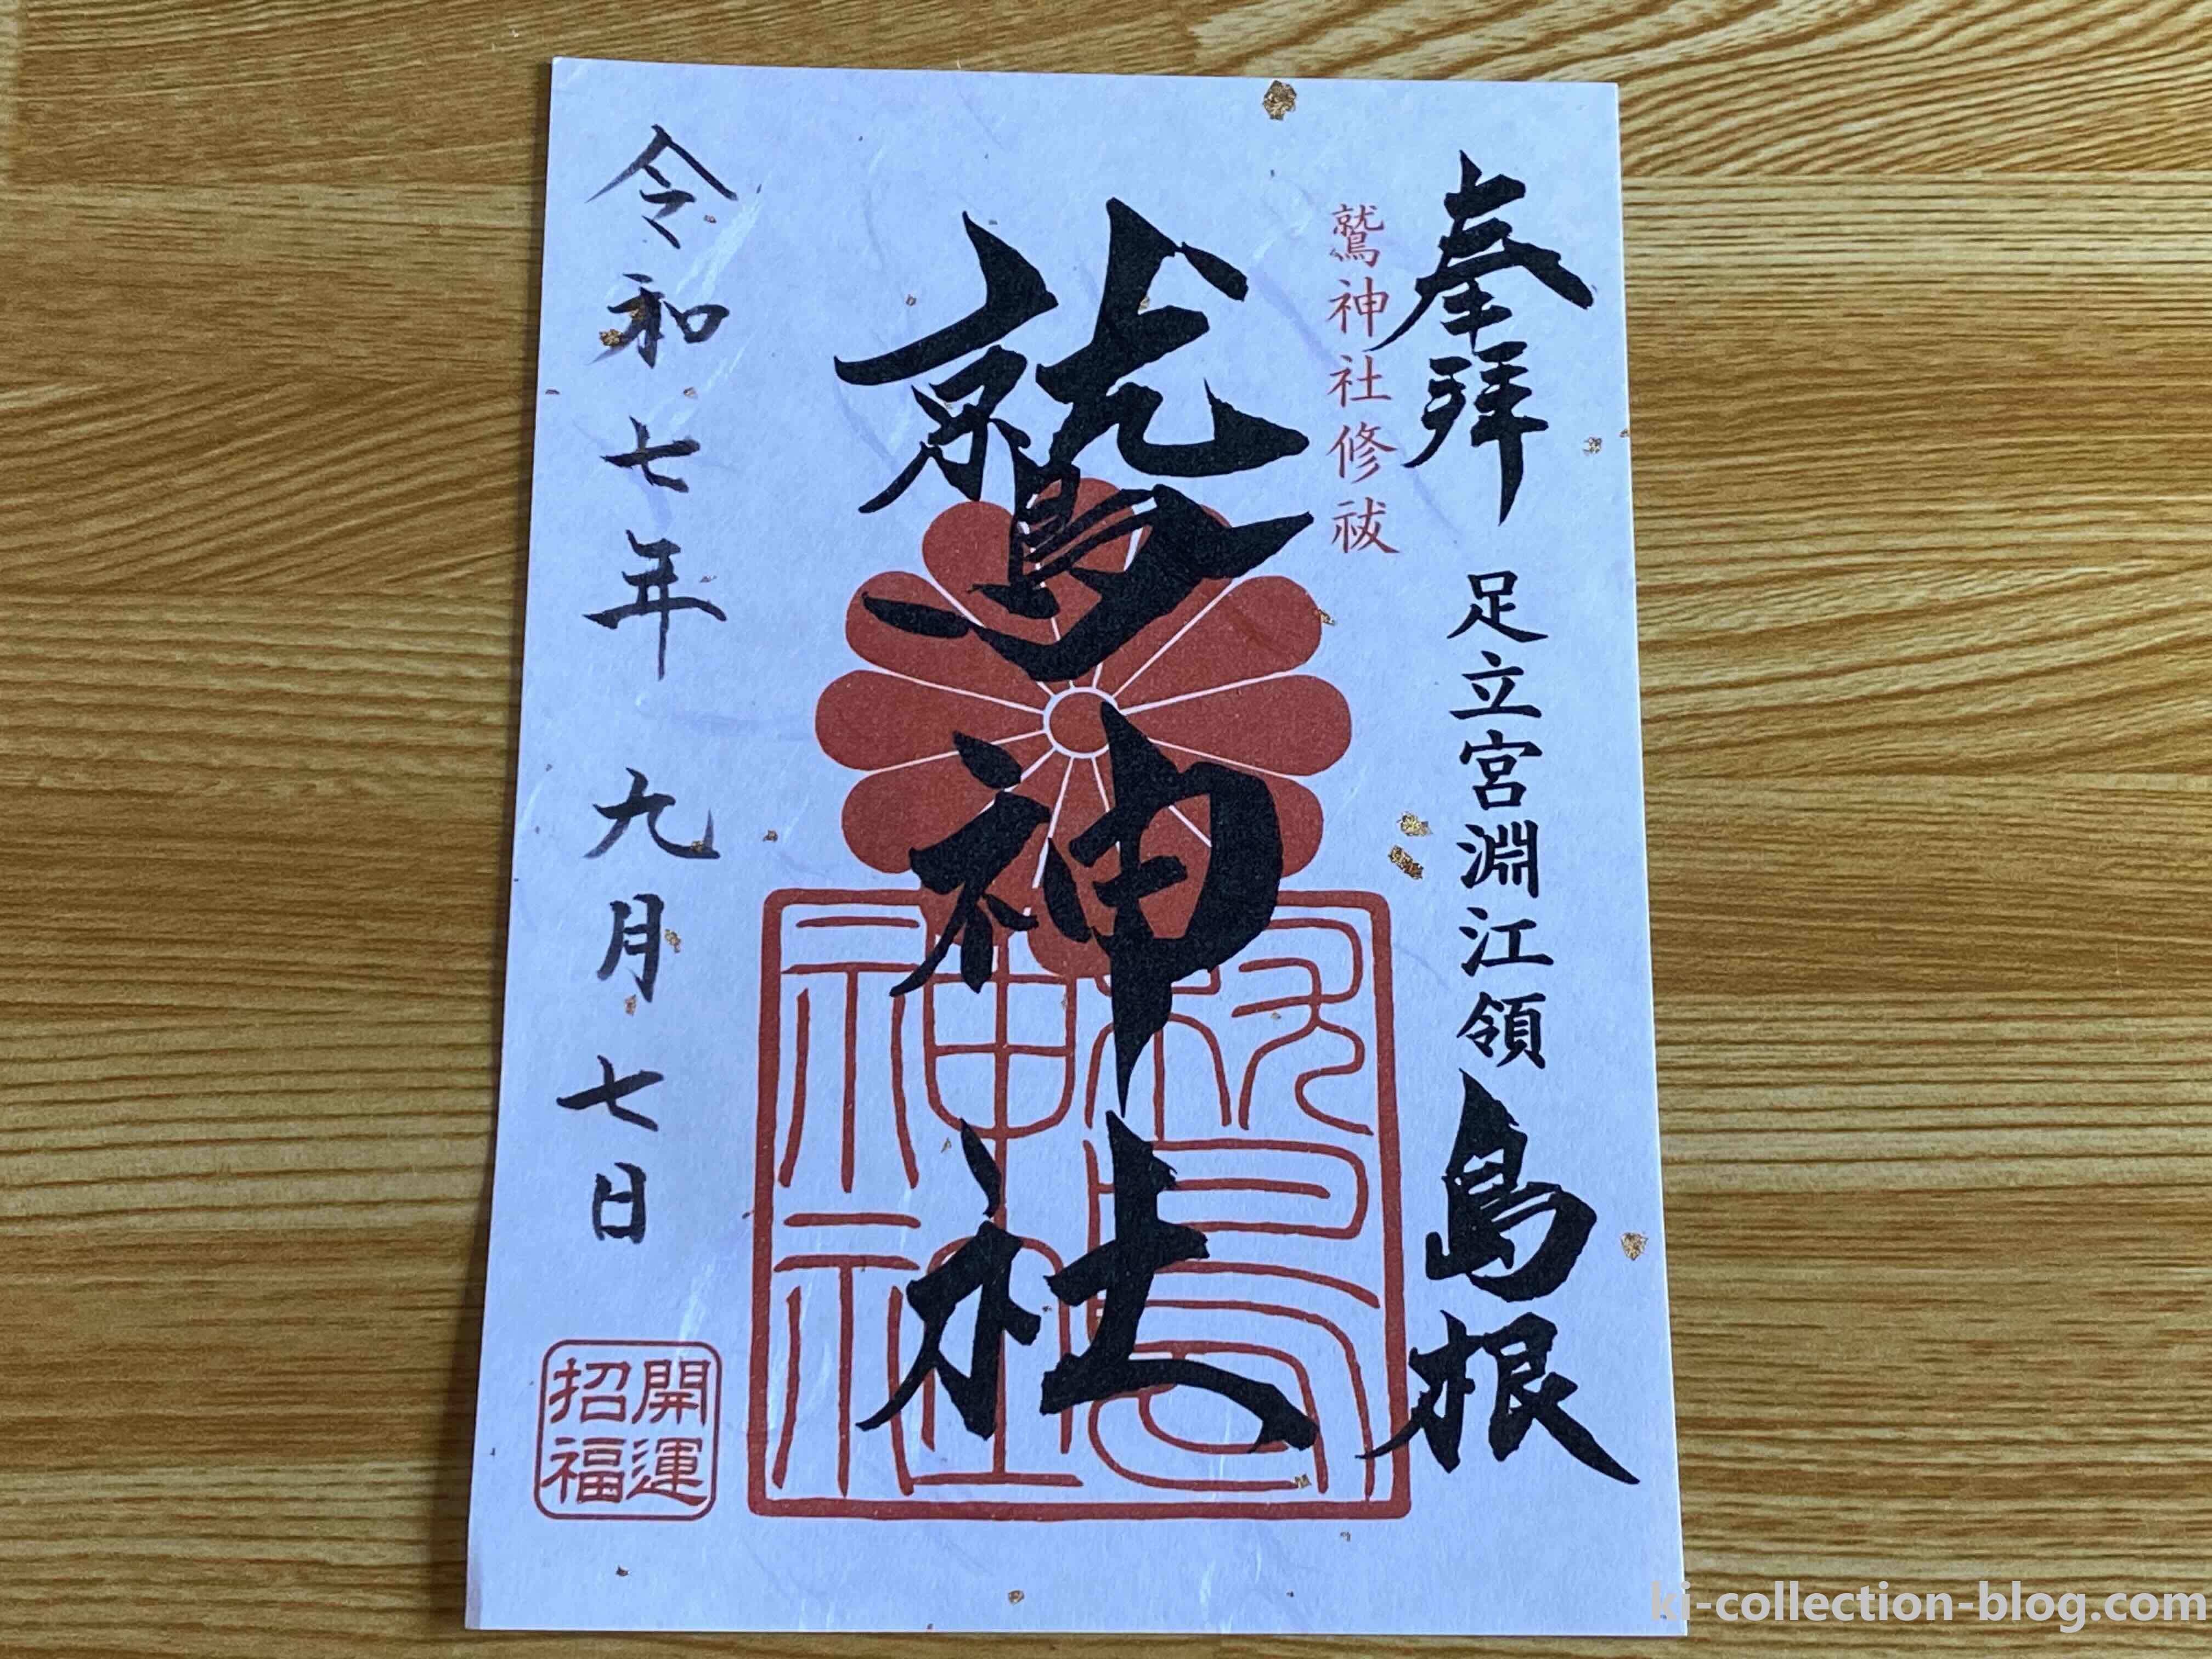 奉拝
足立宮淵江領
島根
鷲神社修祓
鷲神社
令和七年 九月七日
開運
招福
ki-collection-blog.com